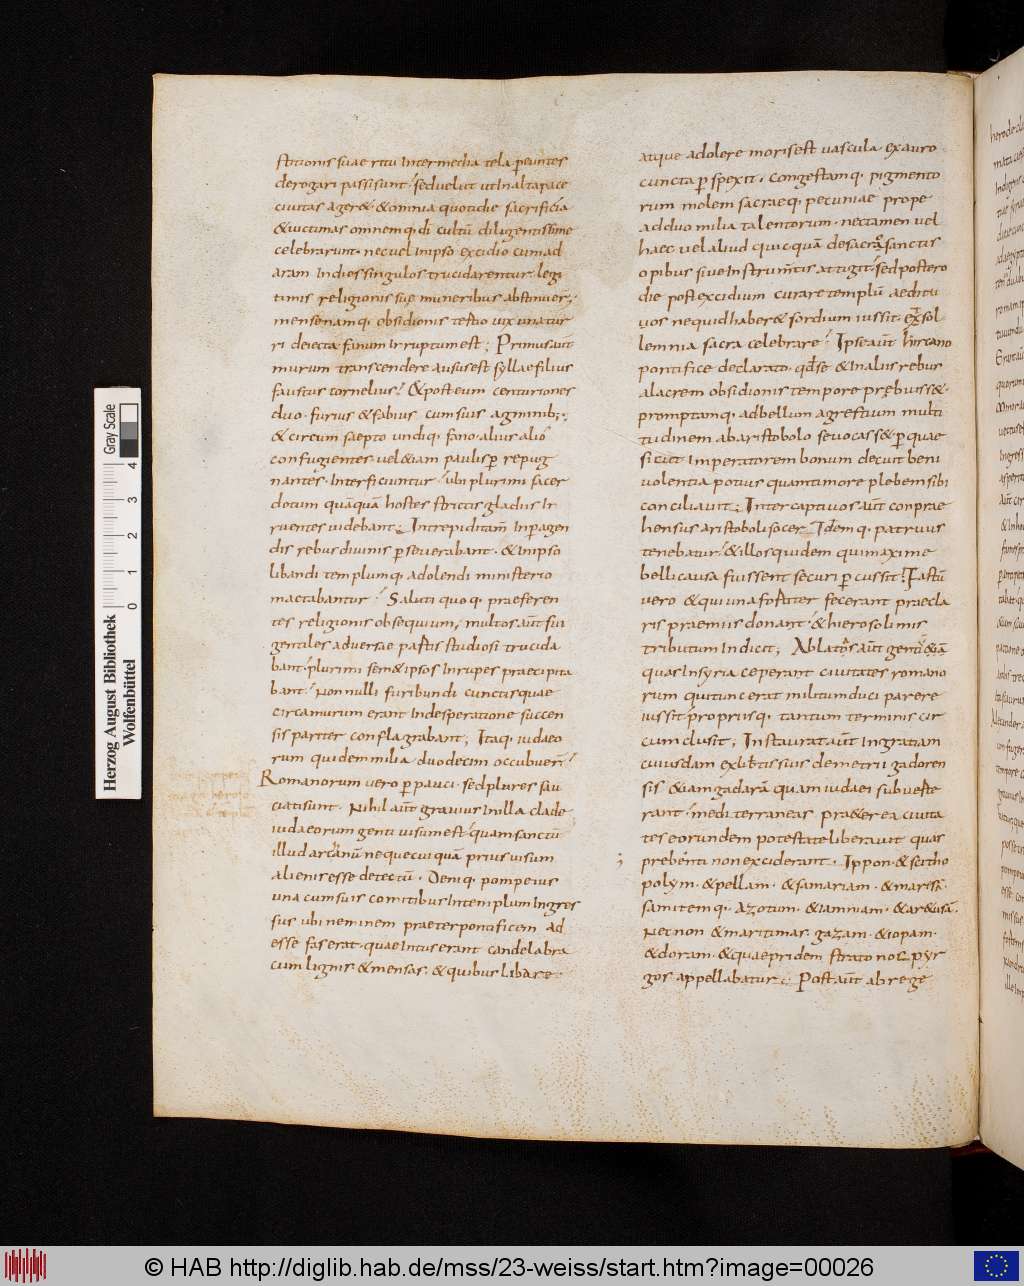 stitionis suae ritu intermedia tela peuntes
derogari passi sunt sed velut ut in alta pace
civitas ager& & omnia quotidie sacrificia
& victimas omnemq. di cultū diligentissime
celebrarunt. nec vel in ipso excidio cum ad
aram in dies singulos trucidarentur. legi
timis religionis suę muneribus abstinuer̄;
mense namq. obsidionis tertio vix una tur
ri deiecta fanum irruptum est; Primus aut̄
murum transcendere ausus est syllae filius
faustus cornelius. & post eum centuriones
duo. furius & fabius cum suis agminib;
& circum saepto undiq. fano. alius alio
confugientes vel &iam paulis p repug
nantes. interficiuntur. ubi plurimi sacer
dotum quāquā hostes strictis gladiis ir
ruentes videbant; Intrepidi tam̄ in pagen
dis rebus divinis p severabant. & in ipso
libandi templumq. adolendi ministerio
mactabantur. Saluti quoq. praeferen
tes religionis obsequium. multos aut̄ sui
gentiles adversae partis studiosi trucida
bant. plurimi sem&ipsos in rupes praecipita
bant. Non nulli furibundi cunctis quae
circa murum erant in desperatione succen
sis pariter conflagrabant; Itaq. iudaeo
rum quidem milia duodecim occubuer̄.
Romanorum vero p pauci. sed plures sau
ciati sunt. Nihil aut̄ gravius in illa clade
iudaeorum genti visum est. quam sanctū
illud arcanū neque cuiquā prius visum
alienis esse detectū. Deniq. pompeius
una cum suis comitibus in templum ingres
sus ubi neminem praeter pontificem ad
esse fas erat. quae intus erant candelabra
cum lignis. & mensas. & quibus libare.
atque adolere moris est vascula ex auro
cuncta pspexit. congestamq. pigmento
rum molem sacraeq. pecuniae prope
ad duo milia talentorum. nec tamen vel
haec. vel aliud quicquā de sacrosanctis
opibus sive instrum̄tis attigit. sed postero
die post excidium curare templū aeditu
uos ne quid haber& sordium iussit. ex sol
lemnia sacra celebrare. Ipse aut̄ hircano
pontifice declarato. qd se & in aliis rebus
alacrem obsidionis tempore prębuiss&.
promptamq. ad bellum agrestium multi
tudinem ab aristobolo sevocass& p quae
sicut imperatorem bonum decuit beni
volentia potius quam timore plebem sibi
conciliavit; Inter captivos aut̄ conprae
hensus aristoboli socer. Idemq. patruus
tenebatur. & illos quidem qui maxime
belli causa fuissent securi pcussit. Faustū
vero & qui una fortiter fecerant praecla
ris praemiis donant. & hierosolimis
tributum indicit; Ablatos aut̄ genti &iā
quas in syria ceperant civitates romano
rum qui tunc erat militum duci parere
iussit propriisq. tantum terminis cir
cumclusit; Instaurat aut̄ in gratiam
cuiusdam ex lib̄tis suis demetrii gadoren
sis &iam gadarā quam iudaei subverte
rant. mediterraneas praeterea civita
tes eorundem potestate liberavit quas
prebenti non exciderant. Ippon. & scitho
polym. & pellam. & samariam. & marisā.
samitemq. azotum. & iamniam. & ar&usā.
Nec non & maritimas. gazam. & iopam.
& doram. & quae pridem stratonos pyr
gos appellabatur; Post aut̄ ab rege
Herzog August Bibliothek
Wolfenbüttel
Gray Scale
0 1 2 3 4
© HAB http://diglib.hab.de/mss/23-weiss/start.htm?image=00026